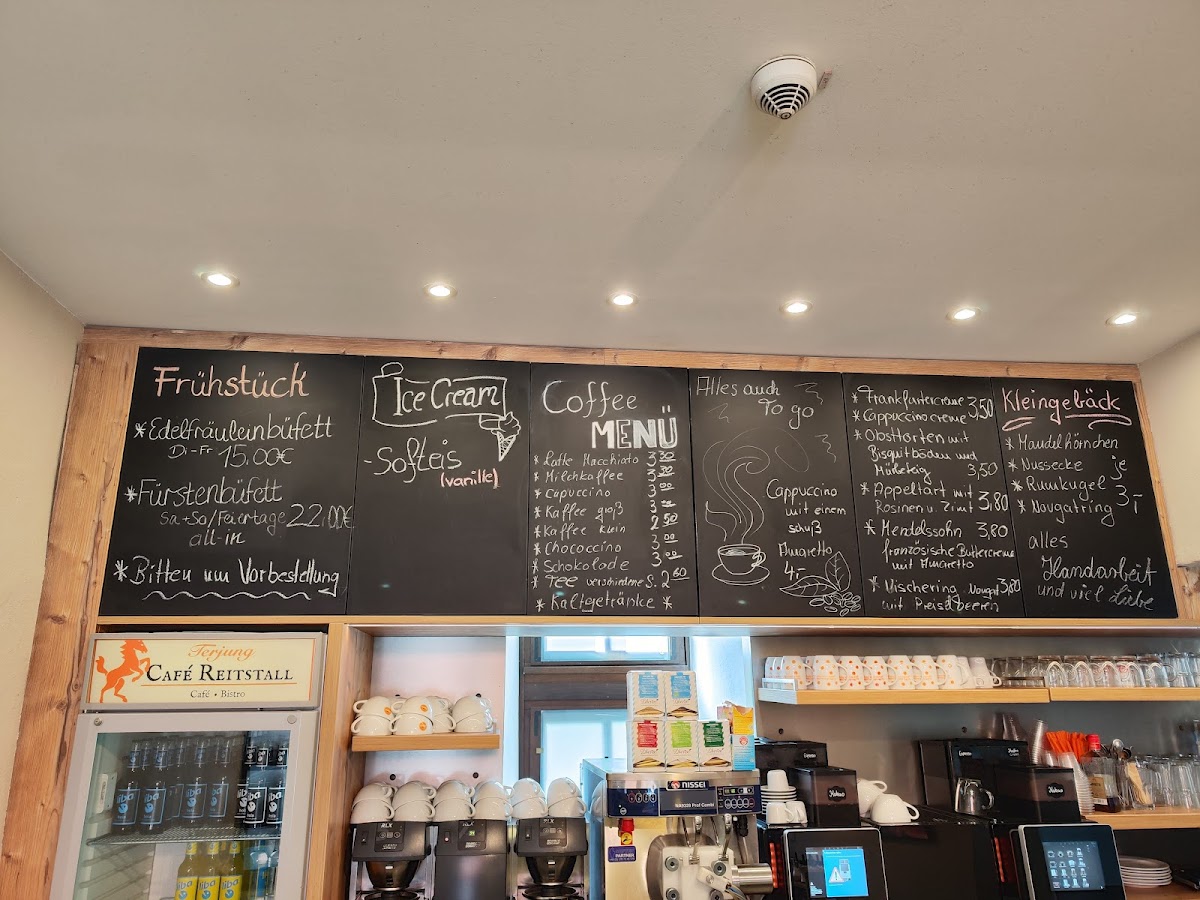 Frühstück
*Edelfräuleinbüfett
Di-Fr 15.00€
*Fürstenbüfett
Sa+So/Feiertage 22,00€
all-in
*Bitten um Vorbestellung
Ice Cream
-Softeis
(vanille)
Coffee
MENÜ
* Latte Macchiato 3 30
* Milchkaffee
* Capuccino
* Kaffee groß
* Kaffee klein 2 50
* Chococcino
* Schokolade
* Tee verschiedene S. 2 60
* Kaltgetränke *
Alles auch
To go
Cappuccino
mit einem
schuß
Amaretto
4,-
* Frankfurtercreme 3,50
* Cappuccinocreme
* Obsttorten mit
Bisquitböden und
Mürbeteig 3,50
* Appeltart mit 3,80
Rosinen u. Zimt
* Mendelssohn 3,80
französische Buttercreme
mit Amaretto
* Vischering Nougat 3,80
mit Preiselbeeren
Kleingebäck
* Mandelhörnchen
* Nussecke je
* Rumkugel 3,-
* Nougatring
alles
Handarbeit
und viel Liebe
Terjung
CAFÉ REITSTALL
Café • Bistro
NISSEI
PARTNER